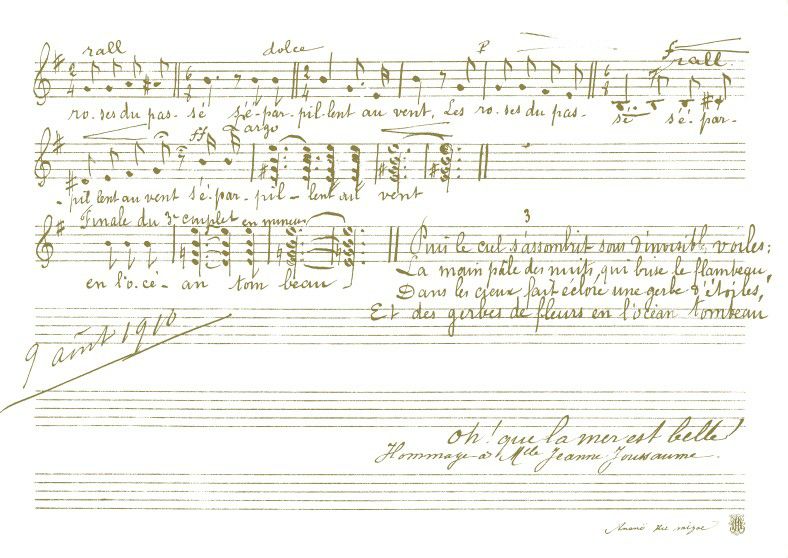 rall dolce p f rall.
ro-ses du pas-sé s'é-par-pil-lent au vent. Les ro-ses du pas-sé s'é-par-
ff Largo
pil lent au vent s'é-par-pil-lent au vent
Finale du 3e couplet en mineur
en l'o-cé-an tom beau
3
Puis le ciel s'assombrit sous d'invisibles voiles:
La main pâle des nuits, qui brise le flambeau,
Dans les cieux fait éclore une gerbe d'étoiles,
Et des gerbes de fleurs en l'océan tombeau
9 août 1910
oh! que la mer est belle!
Hommage à Melle Jeanne Joussaume.